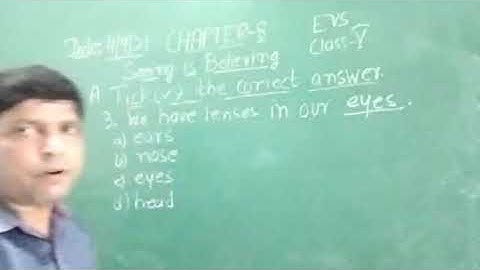 Date: 4/9/21 CHAPTER-8
EVS
Class-V
Seeing is Believing
A Tick (✓) the correct answer.
3. We have lenses in our eyes.
a) ears
b) nose
c) eyes
d) head